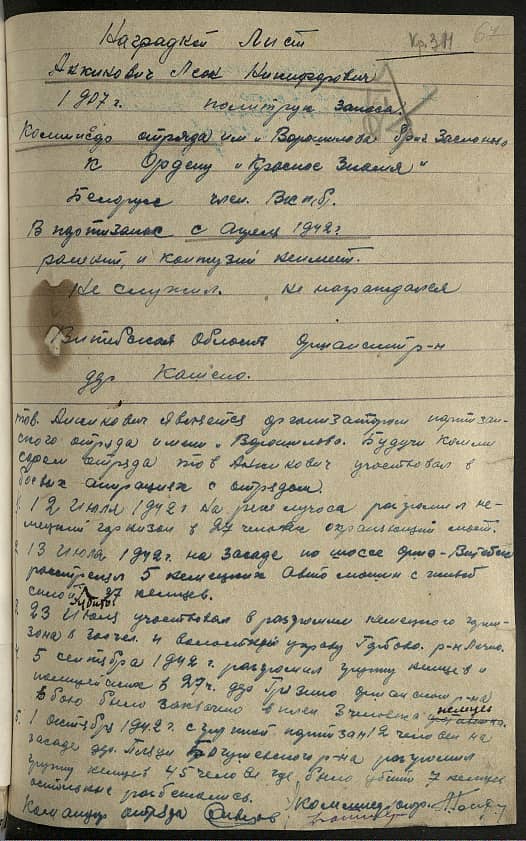 Наградной Лист
Кр. 3 П 67
Анжикович Леон Никифорович
1907 г. политрук запаса.
Коммисар отряда им. "Ворошилова" бриг Заслонова
К Ордену "Красное Знамя"
Белорус член Вкп.б.
В партизанах с Апреля 1942 г.
ранений, и контузий неимеет.
Не служил. не награждался
Витебская Область Оршанский р-н
дер
тов. Анжикович является организатором партизан-
ского отряда имени "Ворошилова. Будучи комми
саром отряда тов Анжикович участвовал в
боевых операциях с отрядом.
1. 12 Июля 1942 г на реке разгромил не-
мецкий гарнизон в 27 человек охраняющий мост.
2. 13 Июля 1942 г. на засаде по шоссе Орша-Витебск
расстрелял 5 немецких Авто машин с живой
силой убито 37 немцев.
3. 23 Июля участвовал в разгроме немецкого гарни-
зона в чел. и волостную управу р-н
4. 5 сентября 1942 г. разгромил группу немцев и
полицейских в 27 ч. дер Оршанский р-на
в бою было захвачено в плен 3 человека немцев
5. 1 октября 1942 г. с группой партизан 12 человек на
засаде дер. Богушевского р-на разгромил
группу немцев 45 человек где было убито 7 немцев
остальные разбежались.
Командир отряда Коммисар отр.